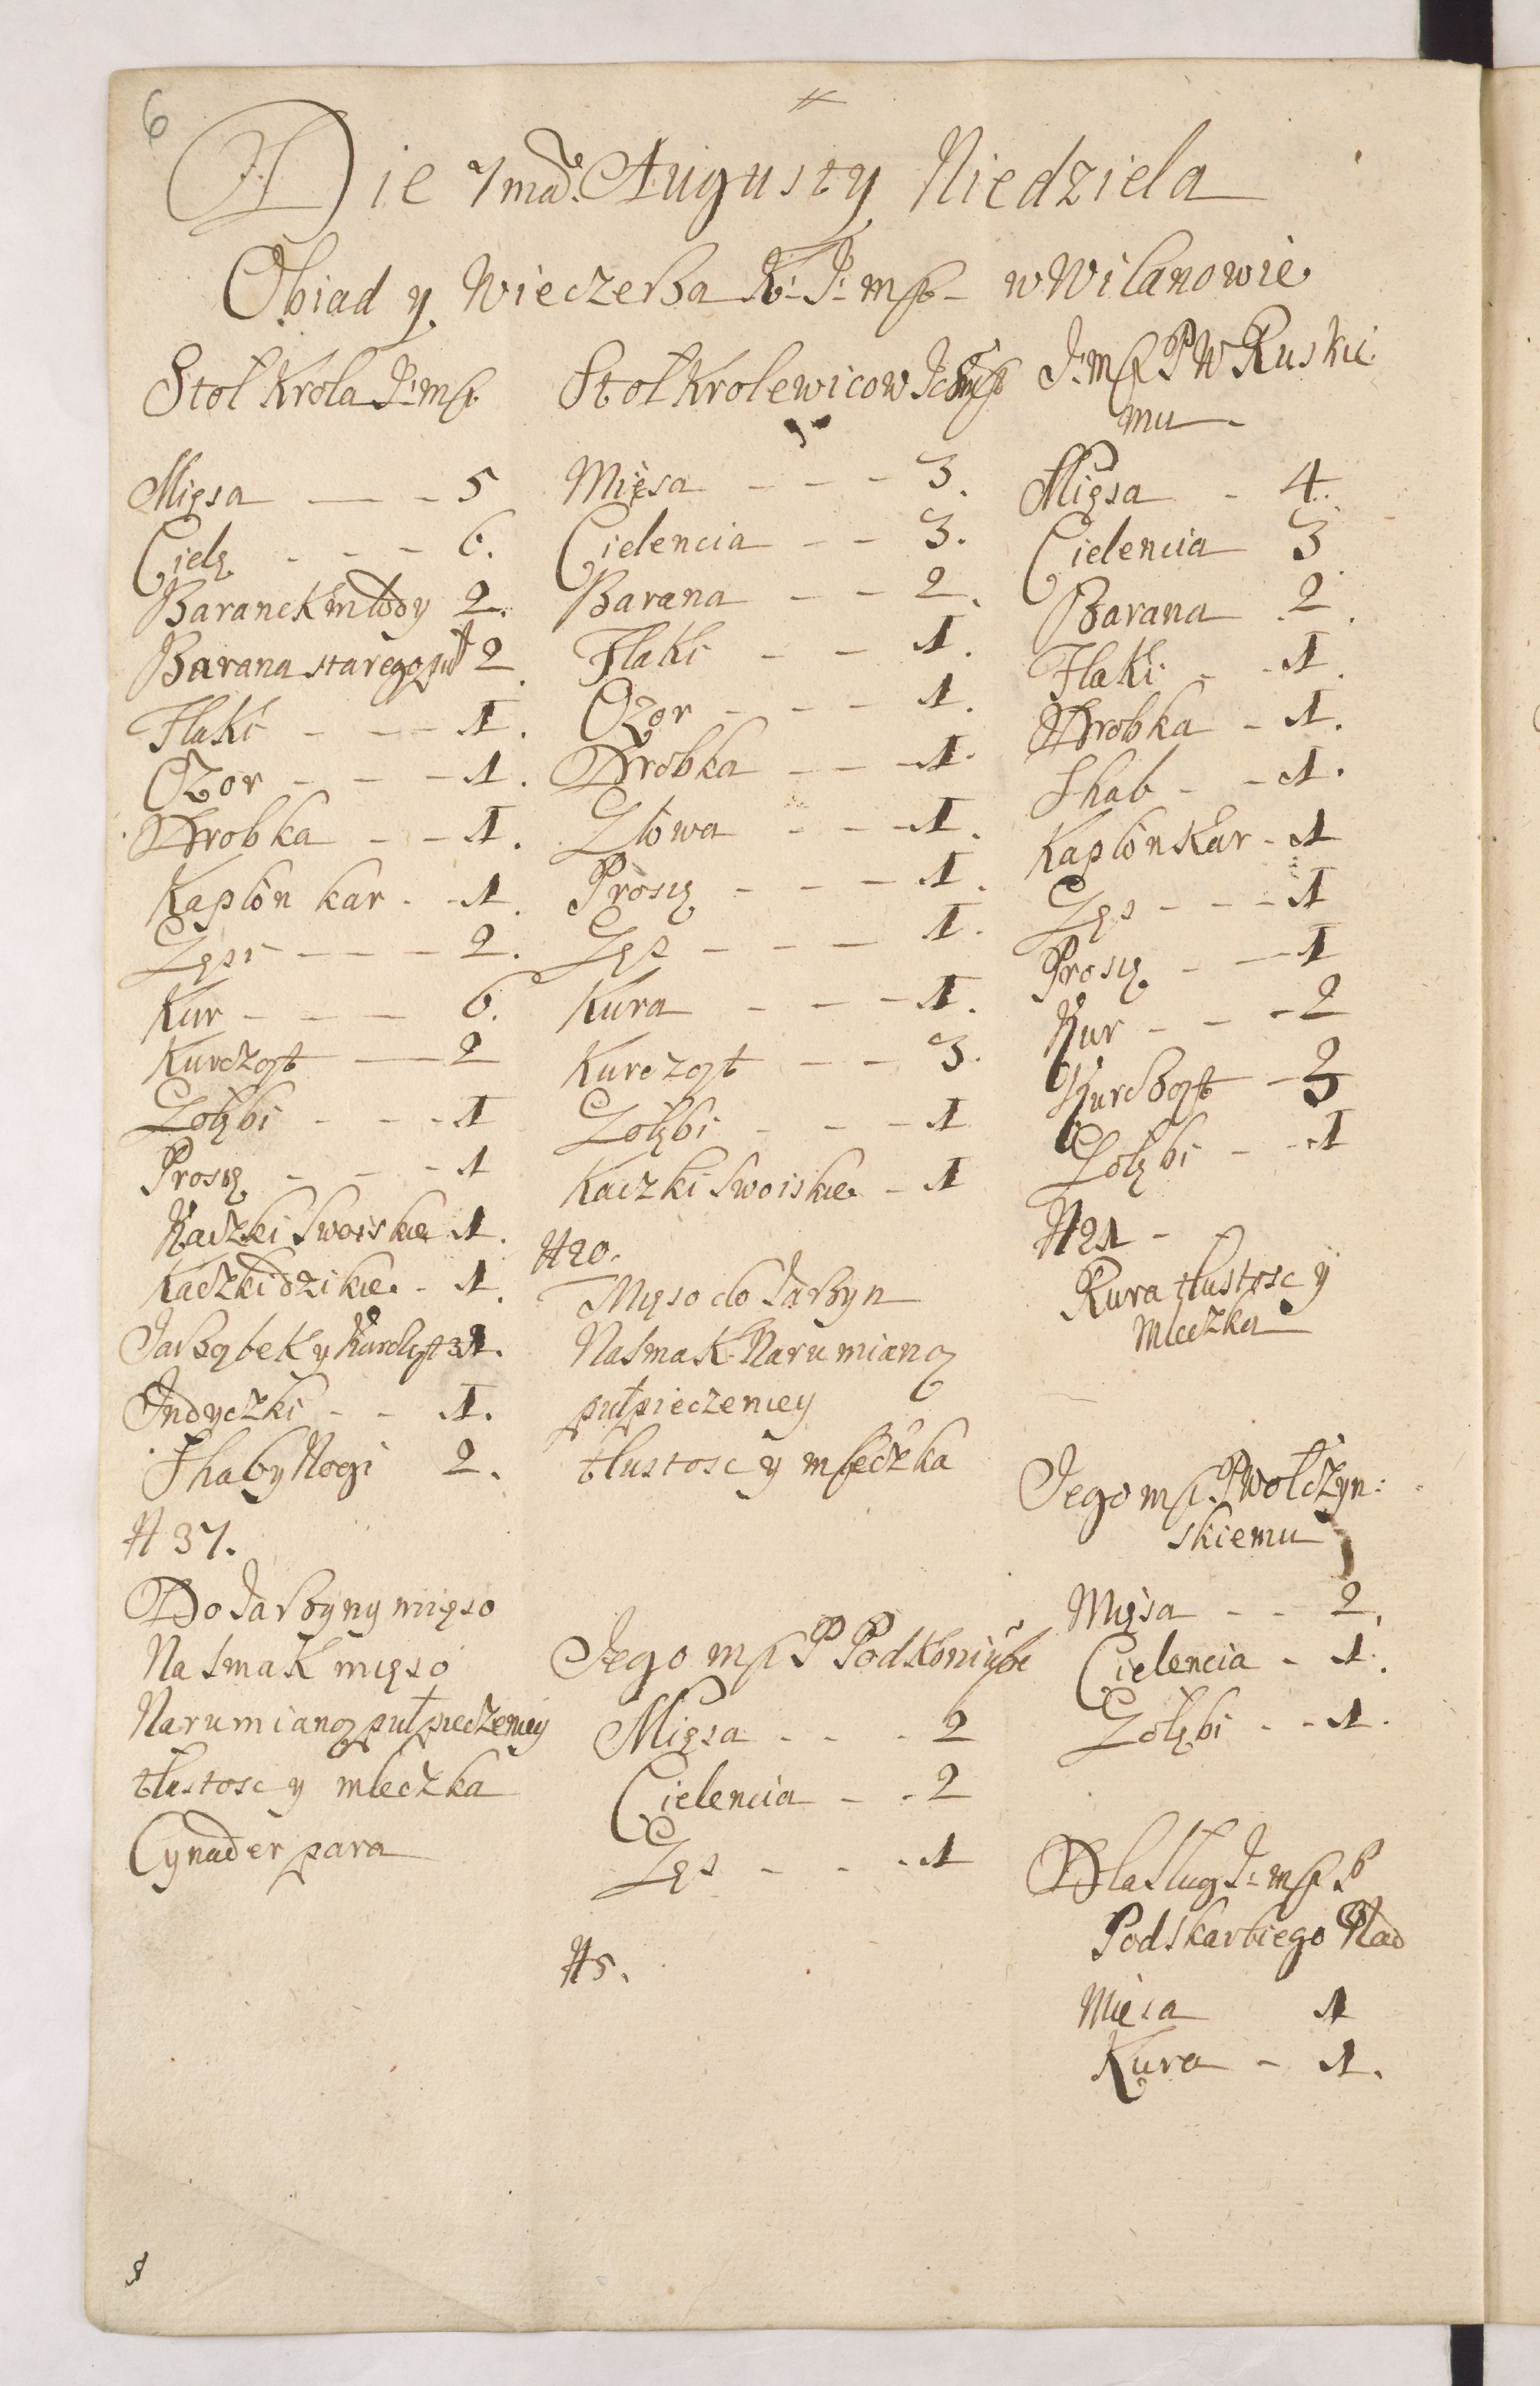 6
Die 7ma Augusty Niedziela
Obiad y Wieczerza K: J: msc w Wilanowie
Stoł Krola J: msc
Mięsa 5
Cielę 6.
Baranek młody 2.
Barana starego puł 2.
Flaki 1.
Ozor 1.
Drobka 1.
Kapłon kar 1.
Gęsi 2.
Kur 6.
Kurcząt 2
Gołębi 1
Prosię 1
Kaczki Swoiskie 1.
Kaczki dzikie 1.
Jarząbek y 1.
Indyczki 1.
Shab y Nogi 2.
N 37.
Do Jarzyny mięso
Na smak mięso
Na rumianą puł pieczeniey
tłustosc y mleczka
Cynader para
Stoł Krolewicow Ichmsc
Mięsa 3.
Cielencia 3.
Barana 2.
Flaki 1.
Ozor 1.
Drobka 1.
Głowa 1.
Prosię 1.
Gęs 1.
Kura 1.
Kurcząt 3.
Gołębi 1
Kaczki Swoiskie 1
N 20.
Mięso do Jarzyn
Na smak Na rumianą
puł pieczeniey
tłustosc y mleczka
Jego msc P Podkoniusze
Mięsa 2
Cielencia 2
Gęs 1
N 5.
J: msc P W Ruskie
mu
Mięsa 4.
Cielencia 3
Barana 2.
Flaki 1.
Drobka 1.
Shab 1.
Kapłon Kar 1
Gęs 1
Prosię 1
Kur 2
Kurcząt 3
Gołębi 1
N 21
Kura tłustosc y
mleczka
Jego msc P Wołczyn:
skiemu
Mięsa 2.
Cielencia 1.
Gołębi 1.
Dla Sług J: msc P
Podskarbiego Nad
Mięsa 1
Kura 1.